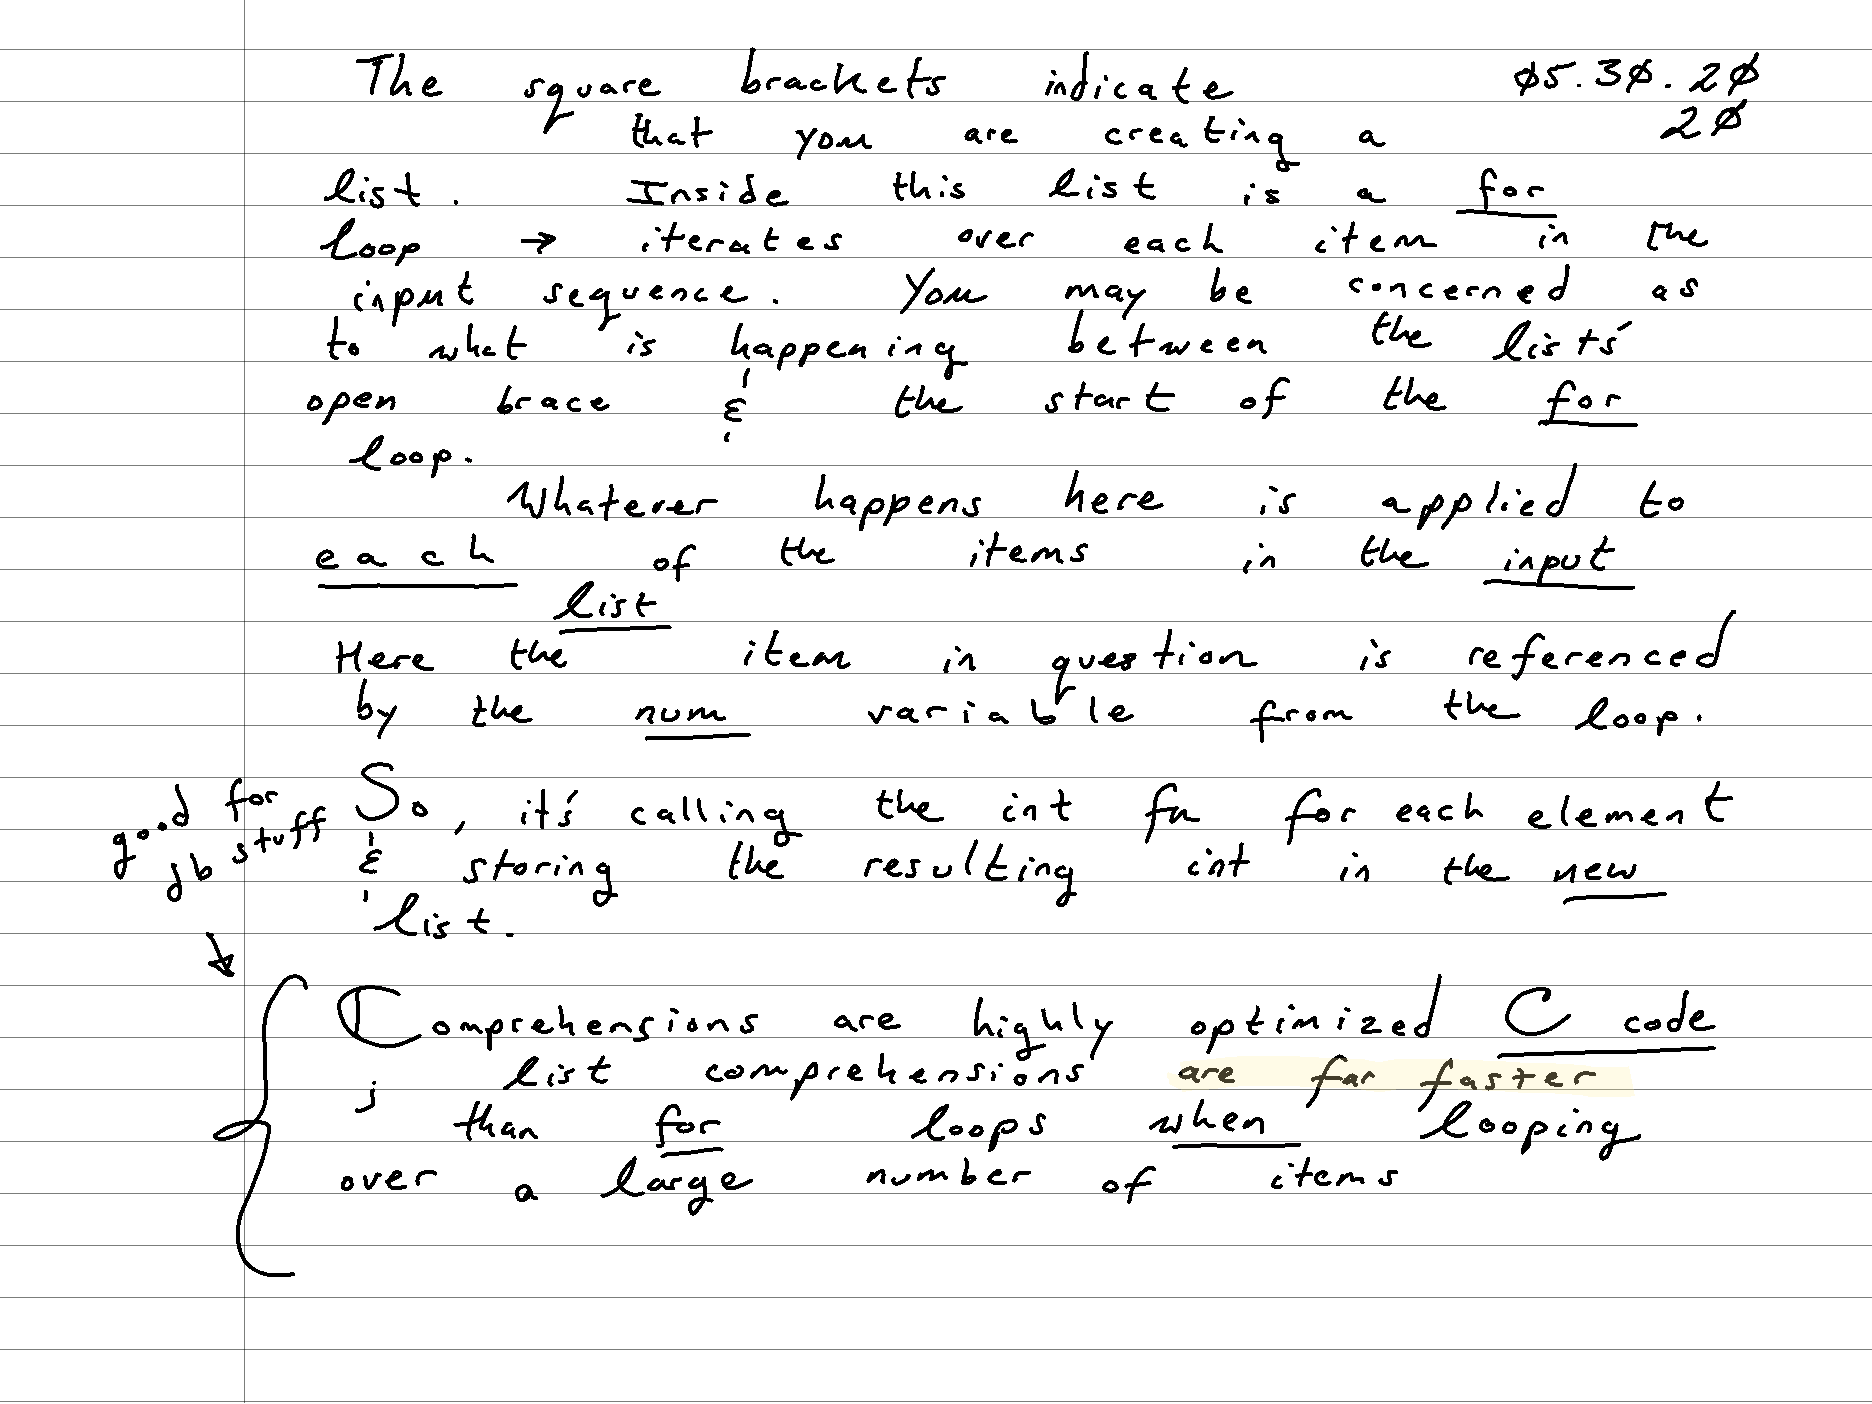 The square brackets indicate
05.30.20
20
that you are creating a
list. Inside this list is a for
loop → iterates over each item in the
input sequence. You may be concerned as
to what is happening between the lists'
open brace & the start of the for
loop.
Whatever happens here is applied to
each of the items in the input
list
Here the item in question is referenced
by the num variable from the loop.
good for
jb stuff
So, it's calling the int fn for each element
& storing the resulting int in the new
list.
Comprehensions are highly optimized C code
; list comprehensions are far faster
than for loops when looping
over a large number of items